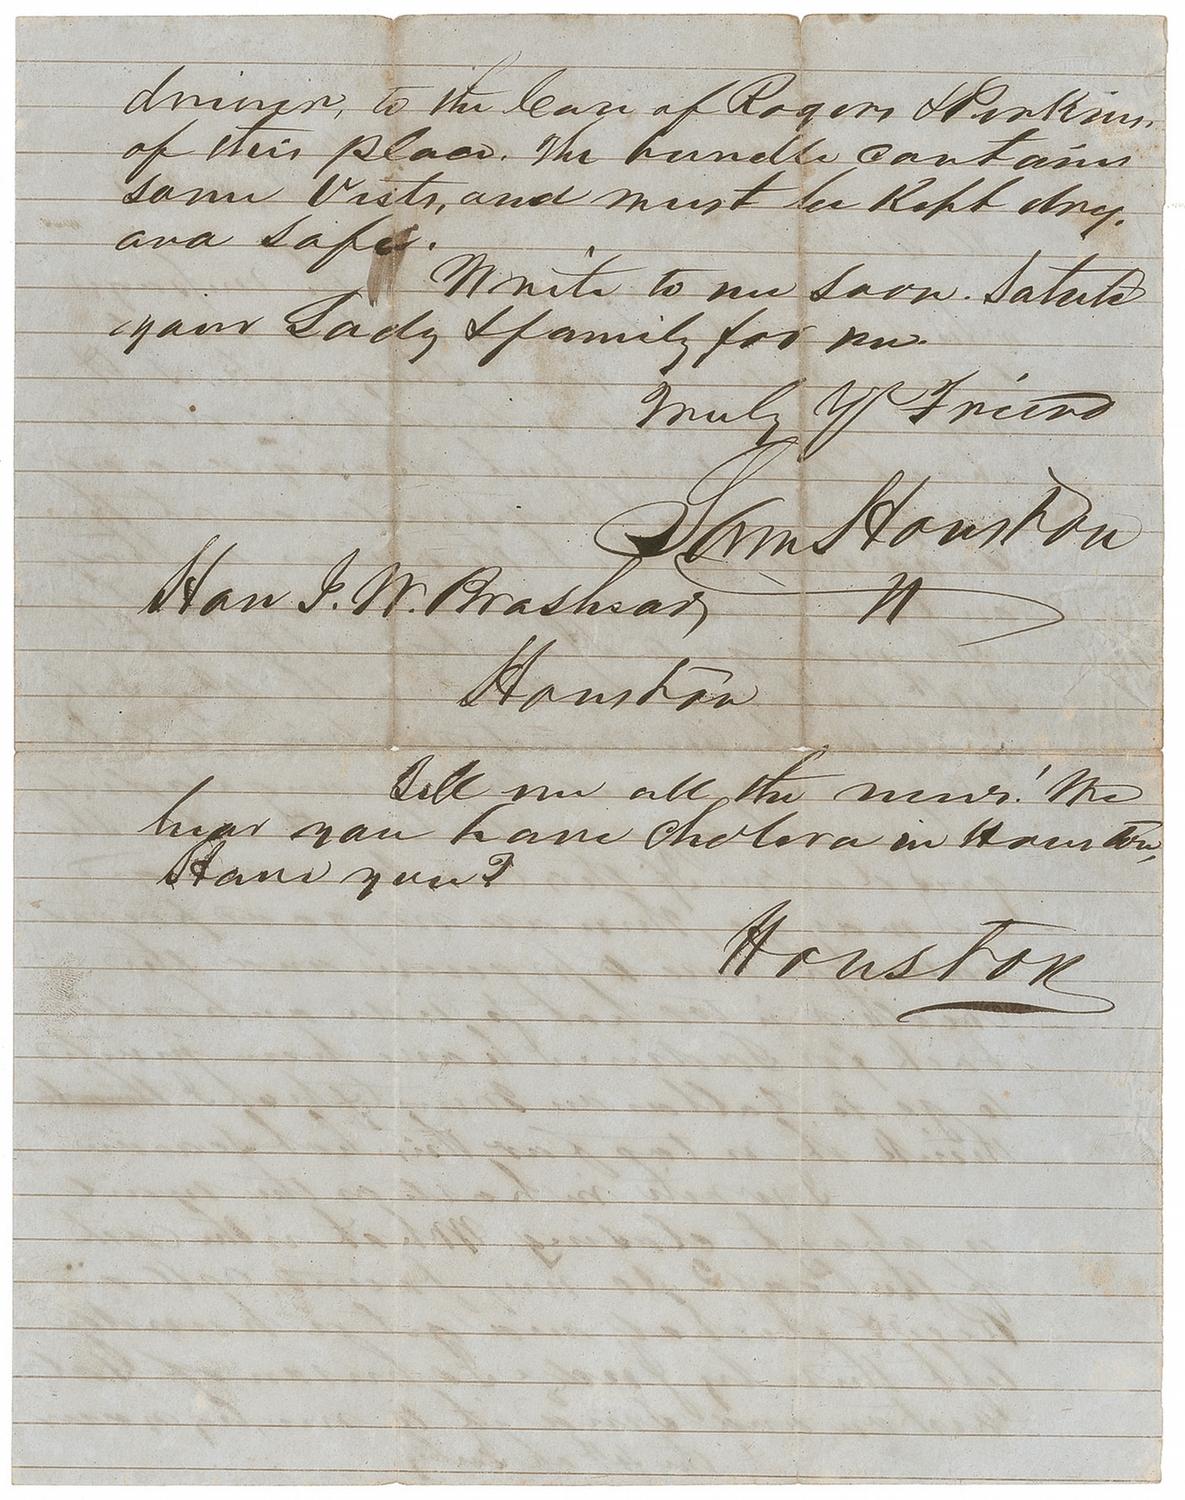 driver, to the Care of Rogers & Perkins,
of this place. The bundle contains
some Vests, and must be Kept dry,
and safe.
Write to me soon. Salute
your Lady & family for me.
Truly Yr Friend
Sam Houston
Hon I. W. Brashear
Houston
Tell me all the news! We
hear you have Cholera in Houston,
Have you?
Houston